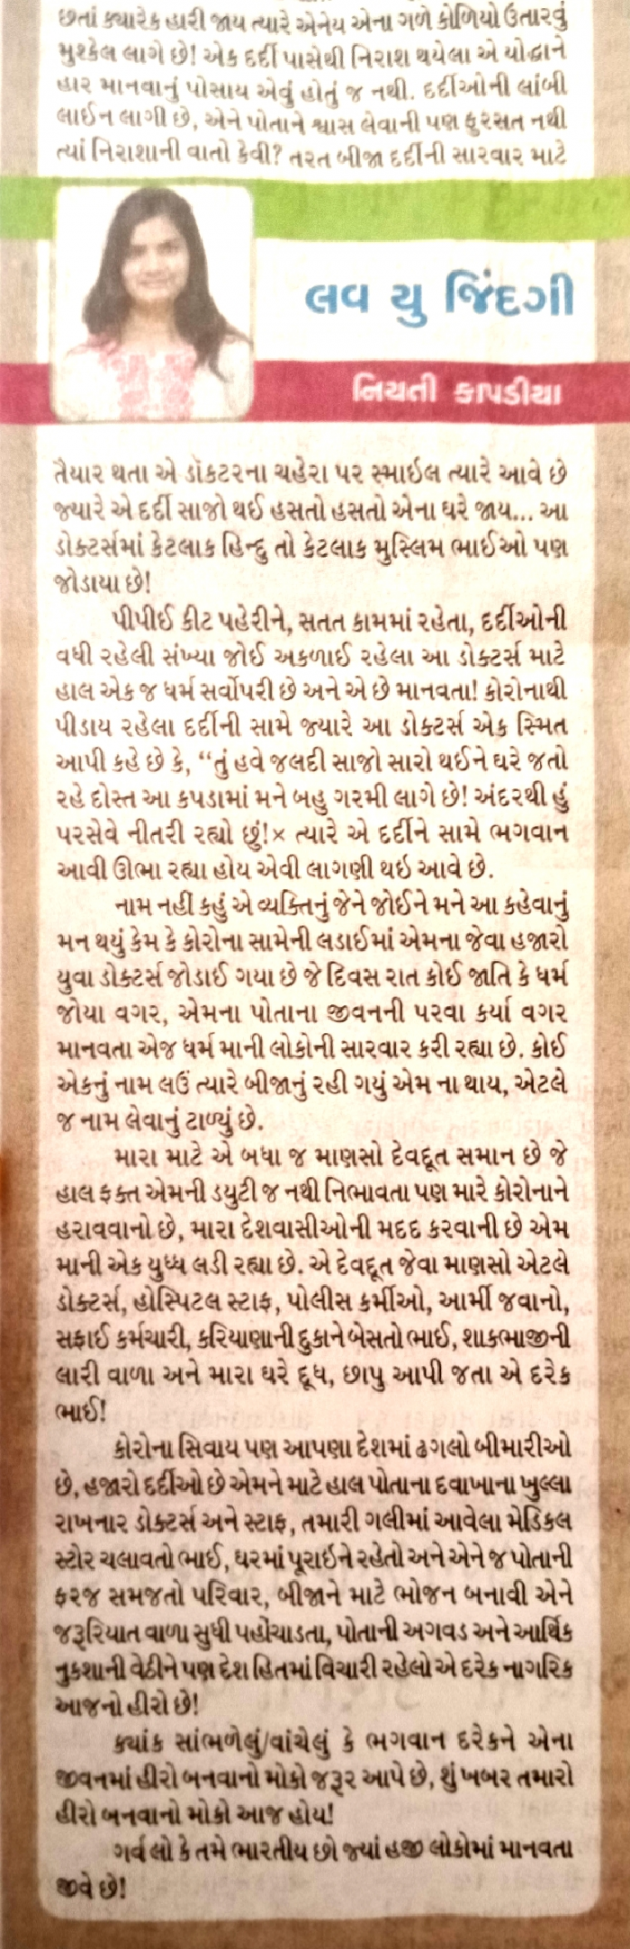 છતાં ક્યારેક હારી જાય ત્યારે એનેય એના ગળે કોળિયો ઉતારવું
મુશ્કેલ લાગે છે! એક દર્દી પાસેથી નિરાશ થયેલા એ યોદ્ધાને
હાર માનવાનું પોસાય એવું હોતું જ નથી. દર્દીઓની લાંબી
લાઈન લાગી છે, એને પોતાને શ્વાસ લેવાની પણ ફુરસત નથી
ત્યાં નિરાશાની વાતો કેવી? તરત બીજા દર્દીની સારવાર માટે
લવ યુ જિંદગી
નિયતી કાપડીયા
તૈયાર થતા એ ડૉકટરના ચહેરા પર સ્માઇલ ત્યારે આવે છે
જ્યારે એ દર્દી સાજો થઈ હસતો હસતો એના ઘરે જાય... આ
ડોક્ટર્સમાં કેટલાક હિન્દુ તો કેટલાક મુસ્લિમ ભાઈઓ પણ
જોડાયા છે!
પીપીઈ કીટ પહેરીને, સતત કામમાં રહેતા, દર્દીઓની
વધી રહેલી સંખ્યા જોઈ અકળાઈ રહેલા આ ડોક્ટર્સ માટે
હાલ એક જ ધર્મ સર્વોપરી છે અને એ છે માનવતા! કોરોનાથી
પીડાય રહેલા દર્દીની સામે જ્યારે આ ડોક્ટર્સ એક સ્મિત
આપી કહે છે કે, “તું હવે જલદી સાજો સારો થઈને ઘરે જતો
રહે દોસ્ત આ કપડામાં મને બહુ ગરમી લાગે છે! અંદરથી હું
પરસેવે નીતરી રહ્યો છું!× ત્યારે એ દર્દીને સામે ભગવાન
આવી ઊભા રહ્યા હોય એવી લાગણી થઇ આવે છે.
નામ નહીં કહું એ વ્યક્તિનું જેને જોઈને મને આ કહેવાનું
મન થયું કેમ કે કોરોના સામેની લડાઈમાં એમના જેવા હજારો
યુવા ડોક્ટર્સ જોડાઈ ગયા છે જે દિવસ રાત કોઈ જાતિ કે ધર્મ
જોયા વગર, એમના પોતાના જીવનની પરવા કર્યા વગર
માનવતા એજ ધર્મ માની લોકોની સારવાર કરી રહ્યા છે. કોઈ
એકનું નામ લઉં ત્યારે બીજાનું રહી ગયું એમ ના થાય, એટલે
જ નામ લેવાનું ટાળ્યું છે.
મારા માટે એ બધા જ માણસો દેવદૂત સમાન છે જે
હાલ ફક્ત એમની ડયુટી જ નથી નિભાવતા પણ મારે કોરોનાને
હરાવવાનો છે, મારા દેશવાસીઓની મદદ કરવાની છે એમ
માની એક યુધ્ધ લડી રહ્યા છે. એ દેવદૂત જેવા માણસો એટલે
ડોક્ટર્સ, હોસ્પિટલ સ્ટાફ, પોલીસ કર્મીઓ, આર્મી જવાનો,
સફાઈ કર્મચારી, કરિયાણાની દુકાને બેસતો ભાઈ, શાકભાજીની
લારી વાળા અને મારા ઘરે દૂધ, છાપુ આપી જતા એ દરેક
ભાઈ!
કોરોના સિવાય પણ આપણા દેશમાં ઢગલો બીમારીઓ
છે, હજારો દર્દીઓ છે એમને માટે હાલ પોતાના દવાખાના ખુલ્લા
રાખનાર ડોક્ટર્સ અને સ્ટાફ, તમારી ગલીમાં આવેલા મેડિકલ
સ્ટોર ચલાવતો ભાઈ, ઘરમાં પૂરાઇને રહેતો અને એને જ પોતાની
ફરજ સમજતો પરિવાર, બીજાને માટે ભોજન બનાવી એને
જરૂરિયાત વાળા સુધી પહોંચાડતા, પોતાની અગવડ અને આર્થિક
નુકશાની વેઠીને પણ દેશ હિતમાં વિચારી રહેલો એ દરેક નાગરિક
આજનો હીરો છે!
ક્યાંક સાંભળેલું/વાંચેલું કે ભગવાન દરેકને એના
જીવનમાં હીરો બનવાનો મોકો જરૂર આપે છે, શું ખબર તમારો
હીરો બનવાનો મોકો આજ હોય!
ગર્વ લો કે તમે ભારતીય છો જ્યાં હજી લોકોમાં માનવતા
જીવે છે!